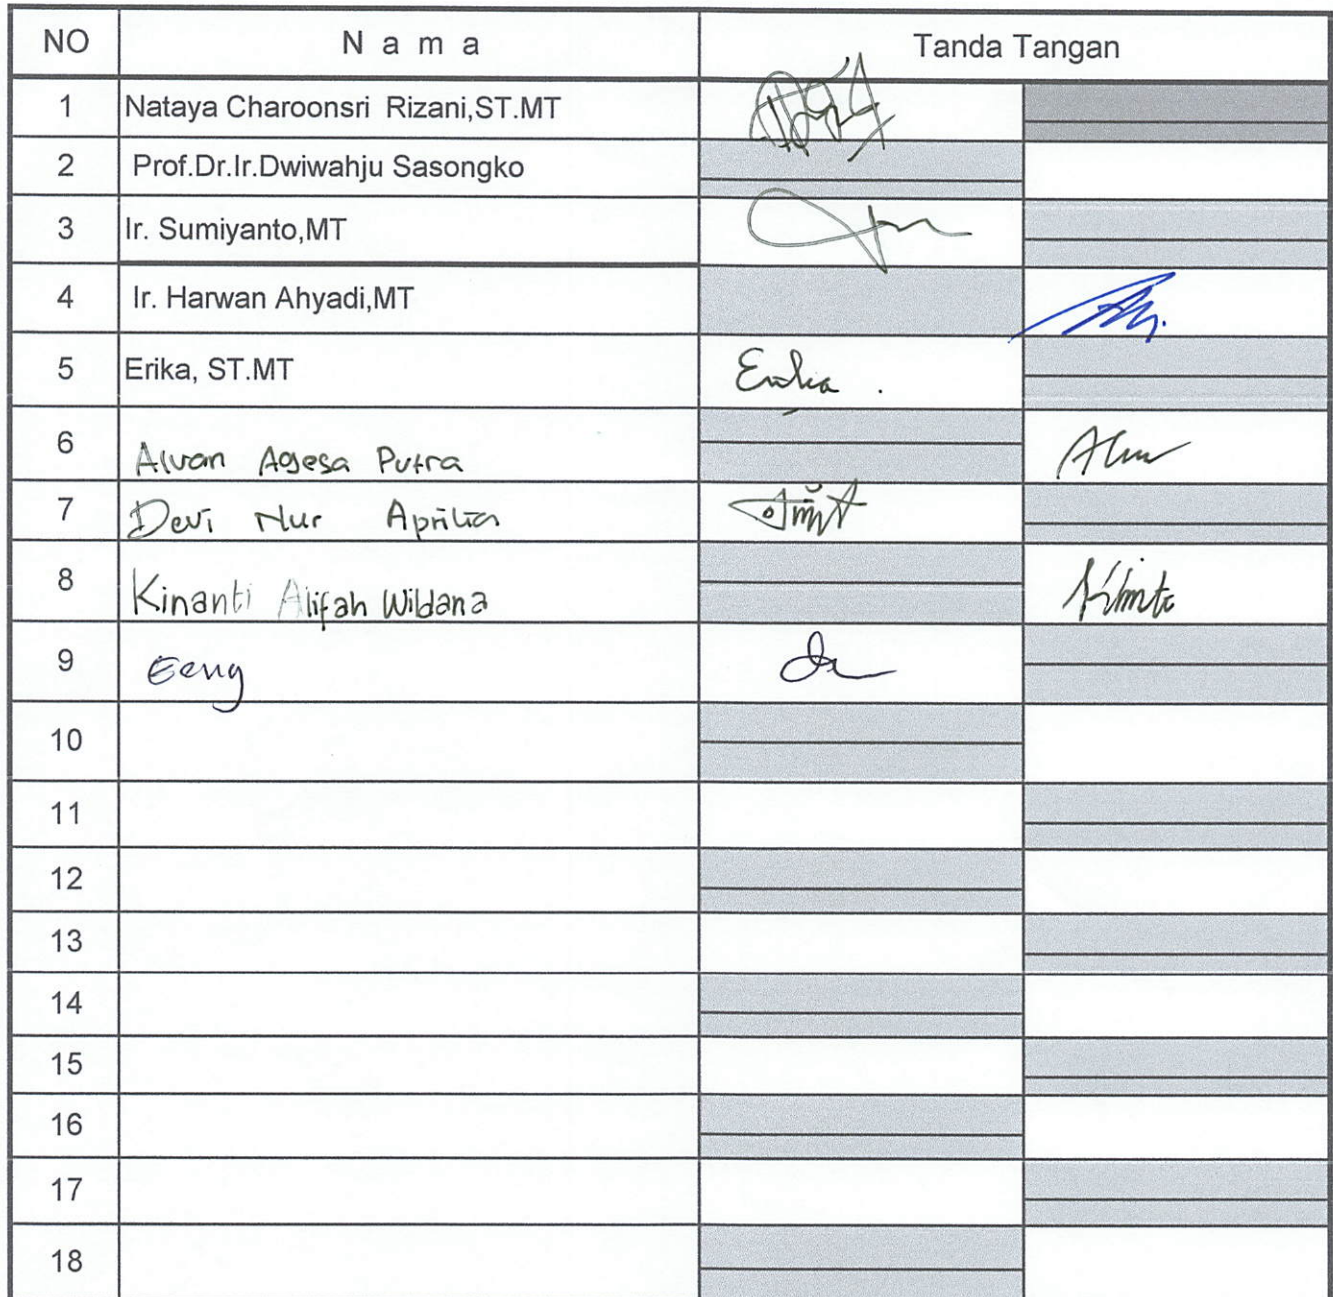 NO N a m a Tanda Tangan
1 Nataya Charoonsri Rizani,ST.MT
2 Prof.Dr.Ir.Dwiwahju Sasongko
3 Ir. Sumiyanto,MT
4 Ir. Harwan Ahyadi,MT
5 Erika, ST.MT Erika .
6 Alvan Agesa Putra
7 Devi Nur Aprilia
8 Kinanti Alifah Wildana
9 Eeng
10
11
12
13
14
15
16
17
18